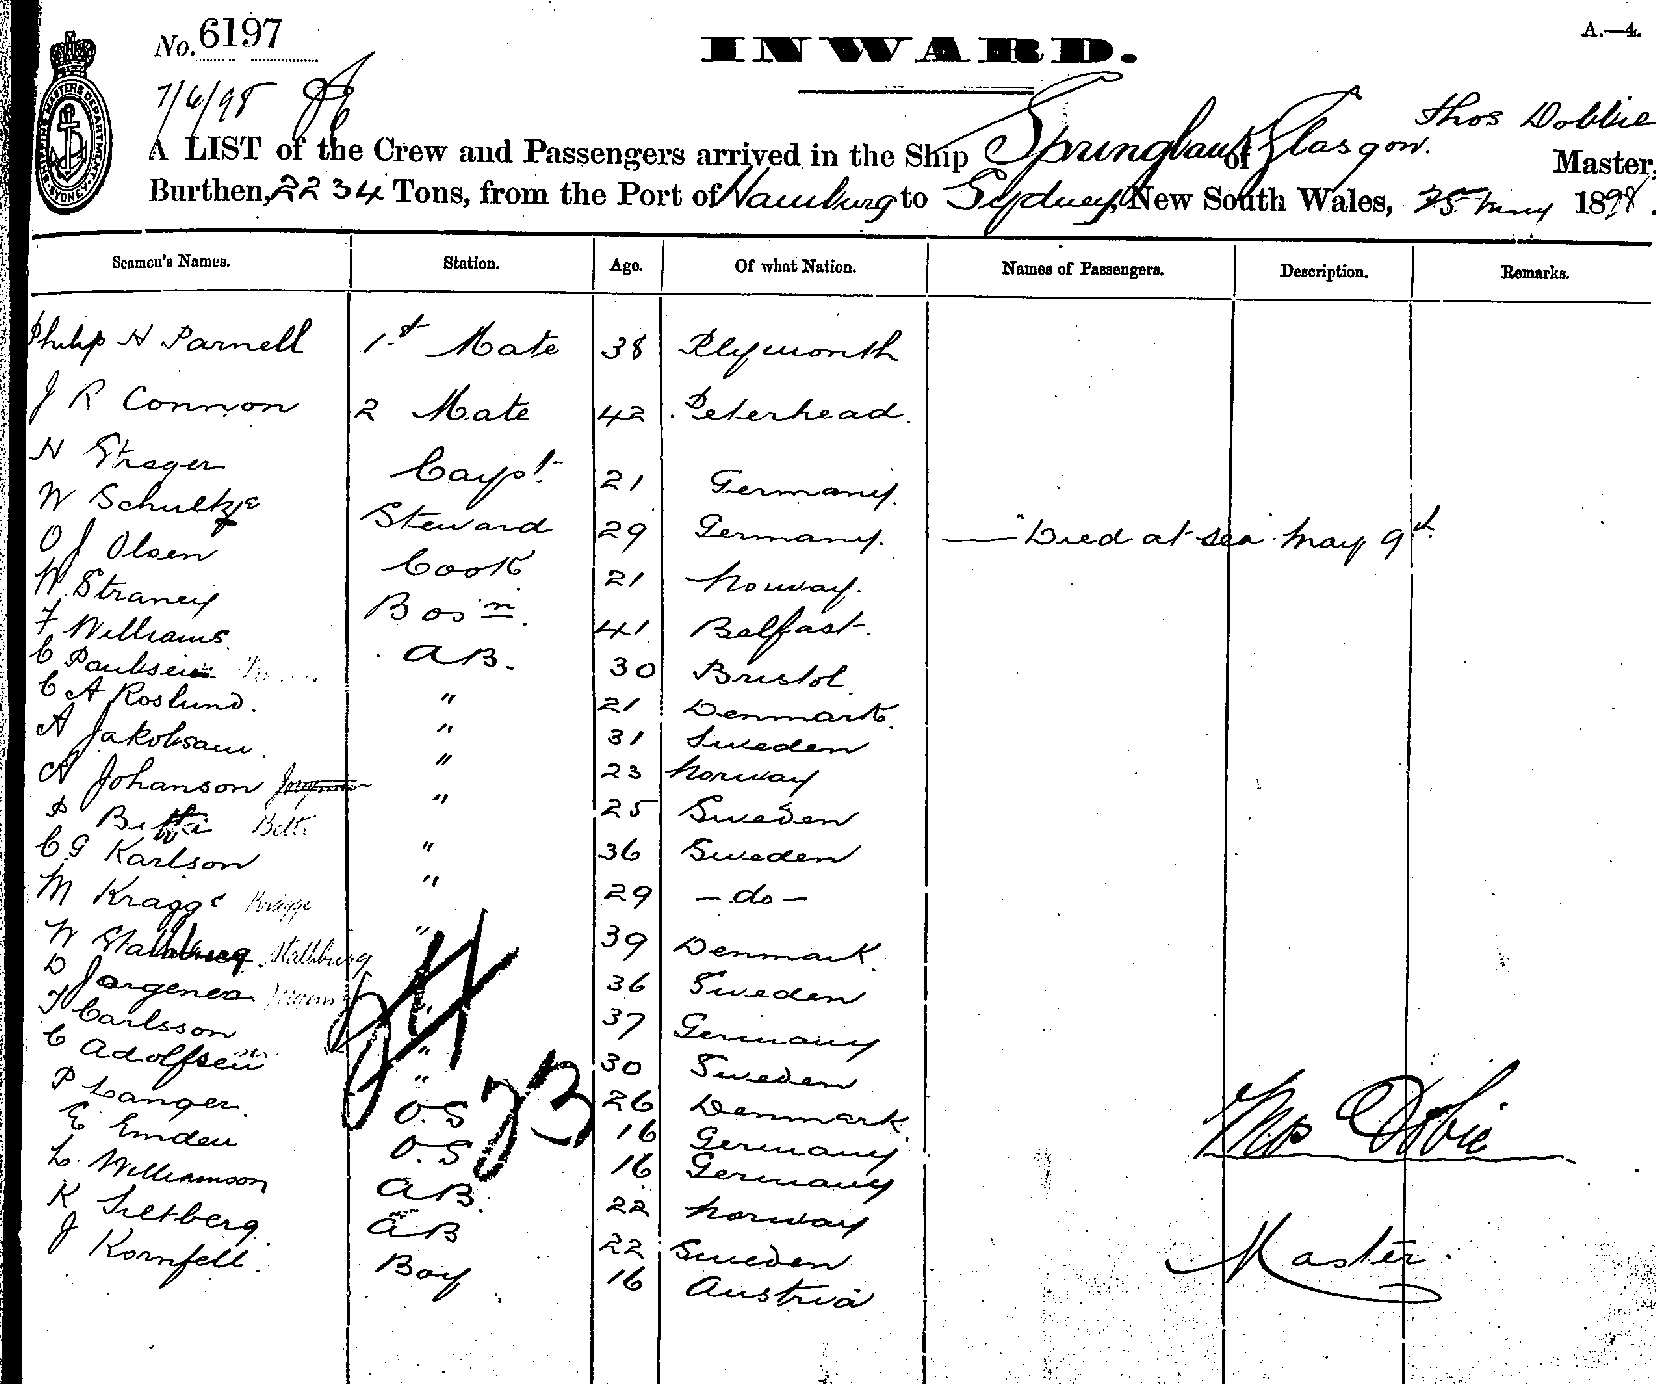 No. 6197
INWARD.
A.—4.
7/6/98
Thos Dobbie
A LIST of the Crew and Passengers arrived in the Ship Springbank of Glasgow. Master,
Burthen, 2234 Tons, from the Port of Hamburg to Sydney, New South Wales, 25 May 1898.
Seamen's Names. Station. Age. Of what Nation. Names of Passengers. Description. Remarks.
Philip H Parnell 1st Mate 38 Plymouth
J R Connon 2 Mate 42 Peterhead.
H Strager Carpt. 21 Germany.
W Schultze Steward 29 Germany. — Died at sea May 9th
O J Olsen Cook 21 Norway.
W. Straney Bosn. 41 Belfast.
F Williams. A B. 30 Bristol.
C Paulsen " 21 Denmark.
C A Roslund. " 31 Sweden
A Jakobsen. " 23 Norway
A Johanson " 25 Sweden
P Betti " 36 Sweden
C G Karlson " 29 — do —
M Kragge Kragge " 39 Denmark.
W Stallburg Stallburg " 36 Sweden
D Jorgenes 37 Germany
F Carlsson " 30 Sweden
C Adolfsen " 26 Denmark.
P Langer. O.S 16 Germany
E Emden O.S 16 Germany
L. Williamson A B. 22 Norway
K Siltberg. A B 22 Sweden
J Kornfell. Boy 16 Austria
24
23
Thos Dobie
Master.